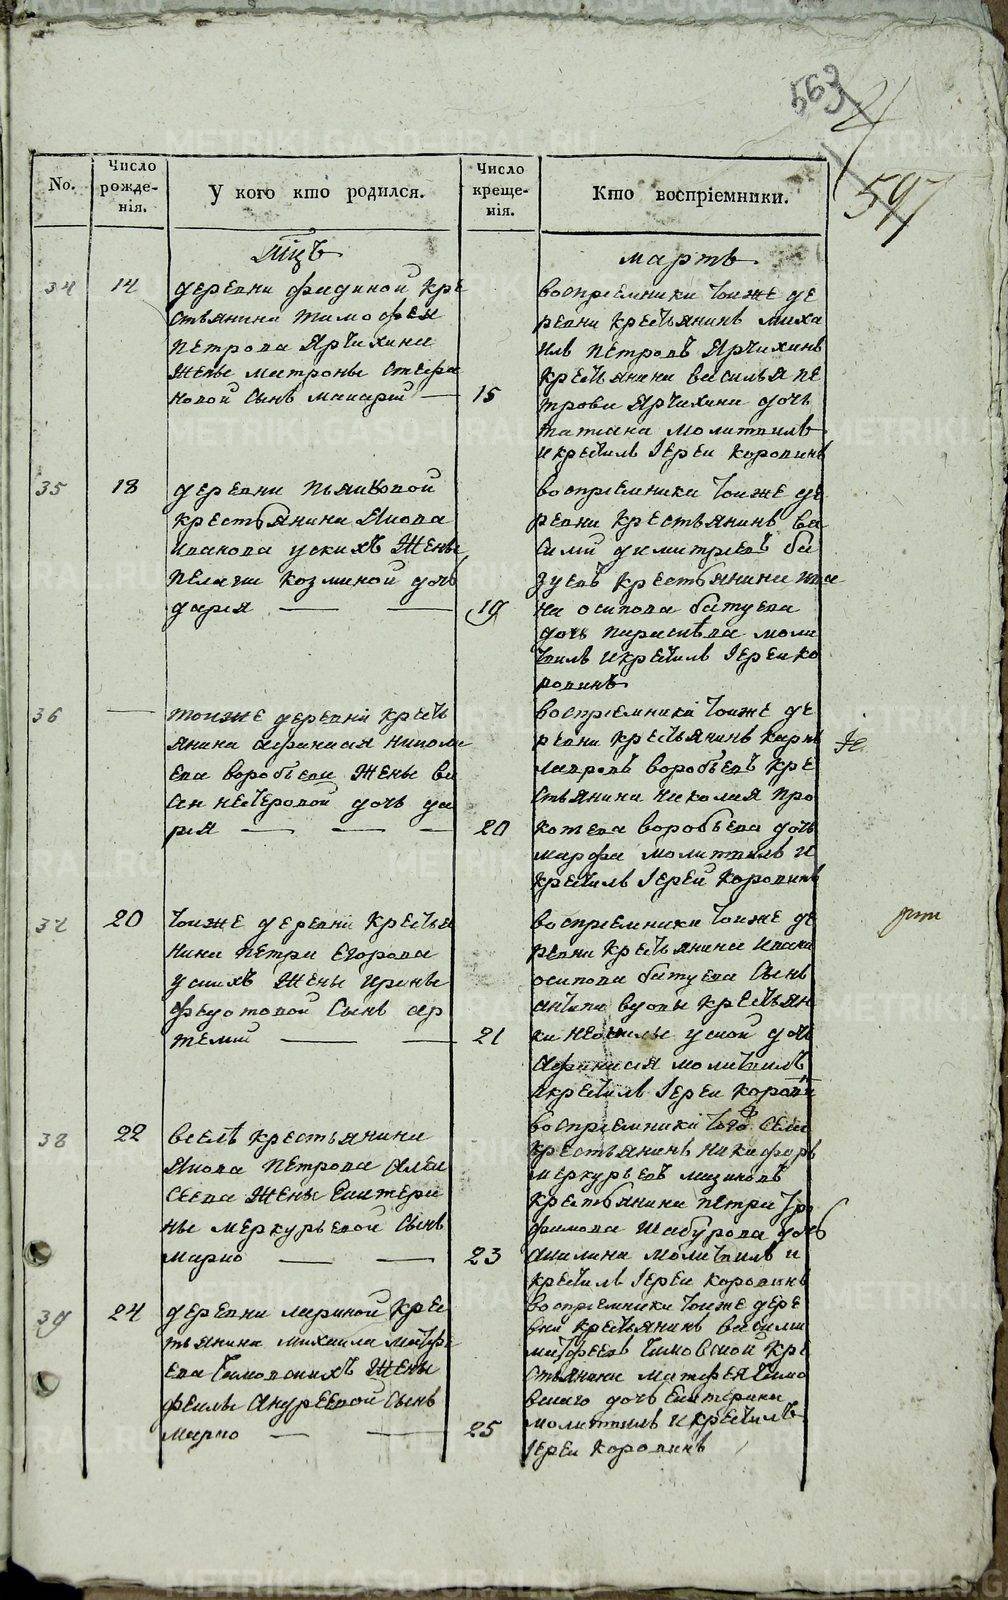 563
597
No.
Число рожде- нія.
У кого кто родился.
Число креще- нія.
Кто воспріемники.
Мцъ
мартъ
34
14
деревни фадиной кре
стьянина тимофея
петрова Ярчихина
жены матроны стефа
новой сынъ макарий
15
воспріемники тоиже де
ревни крестьянинъ миха
илъ петровъ Ярчихинъ
крестьянина василья пе
трова Ярчихина дочь
татиана молитвилъ
и крестилъ Іереи коровинъ
35
18
деревни пьянковой
крестьянина Якова
иванова ускихъ жены
пелагии козминой дочь
дарія
19
воспріемники тоиже де
ревни крестьянинъ ва
силий димитріевъ ба
зуевъ крестьянина ива
на осипова батуева
дочь параскева моли
твилъ и крестилъ Іереи ко
ровинъ
36
тоиже деревни кресть
янина афанасия никола
ева воробьева жены ва
сы нестеровой дочь да
рія
20
воспріемники тоиже де
ревни крестьянинъ карпъ
лавровъ воробьевъ кре
стьянина николая про
копева воробьева дочь
марфа молитвилъ и
крестилъ Іереи коровинъ
37
20
тоиже деревни крестья
нина петра егорова
ускихъ жены ирины
федотовой сынъ ар
темий
21
воспріемники тоиже де
ревни крестьянина ивана
осипова батуева сынъ
антипа вдовы крестьян
ки неонилы уской дочь
афанасия молитвилъ
и крестилъ Іереи корови
38
22
в селѣ крестьянина
Якова петрова алек
сеева жены екатери
ны меркурьевой сынъ
марко
23
воспріемники того села
крестьянинъ никифоръ
меркурьевъ мизиновъ
крестьянина петра тро
фимова шабурова дочь
акилина молитвилъ и
крестилъ Іереи коровинъ
39
24
деревни лариной крес
тьянина михаила матфе
ева тимовскихъ жены
феклы андреевой сынъ
марко
25
воспріемники тоиже дере
вни крестьянинъ василий
матфеевъ тимовской кре
стьянина матфея тимо
вскаго дочь екатерина
молитвилъ и крестилъ
Іереи коровинъ